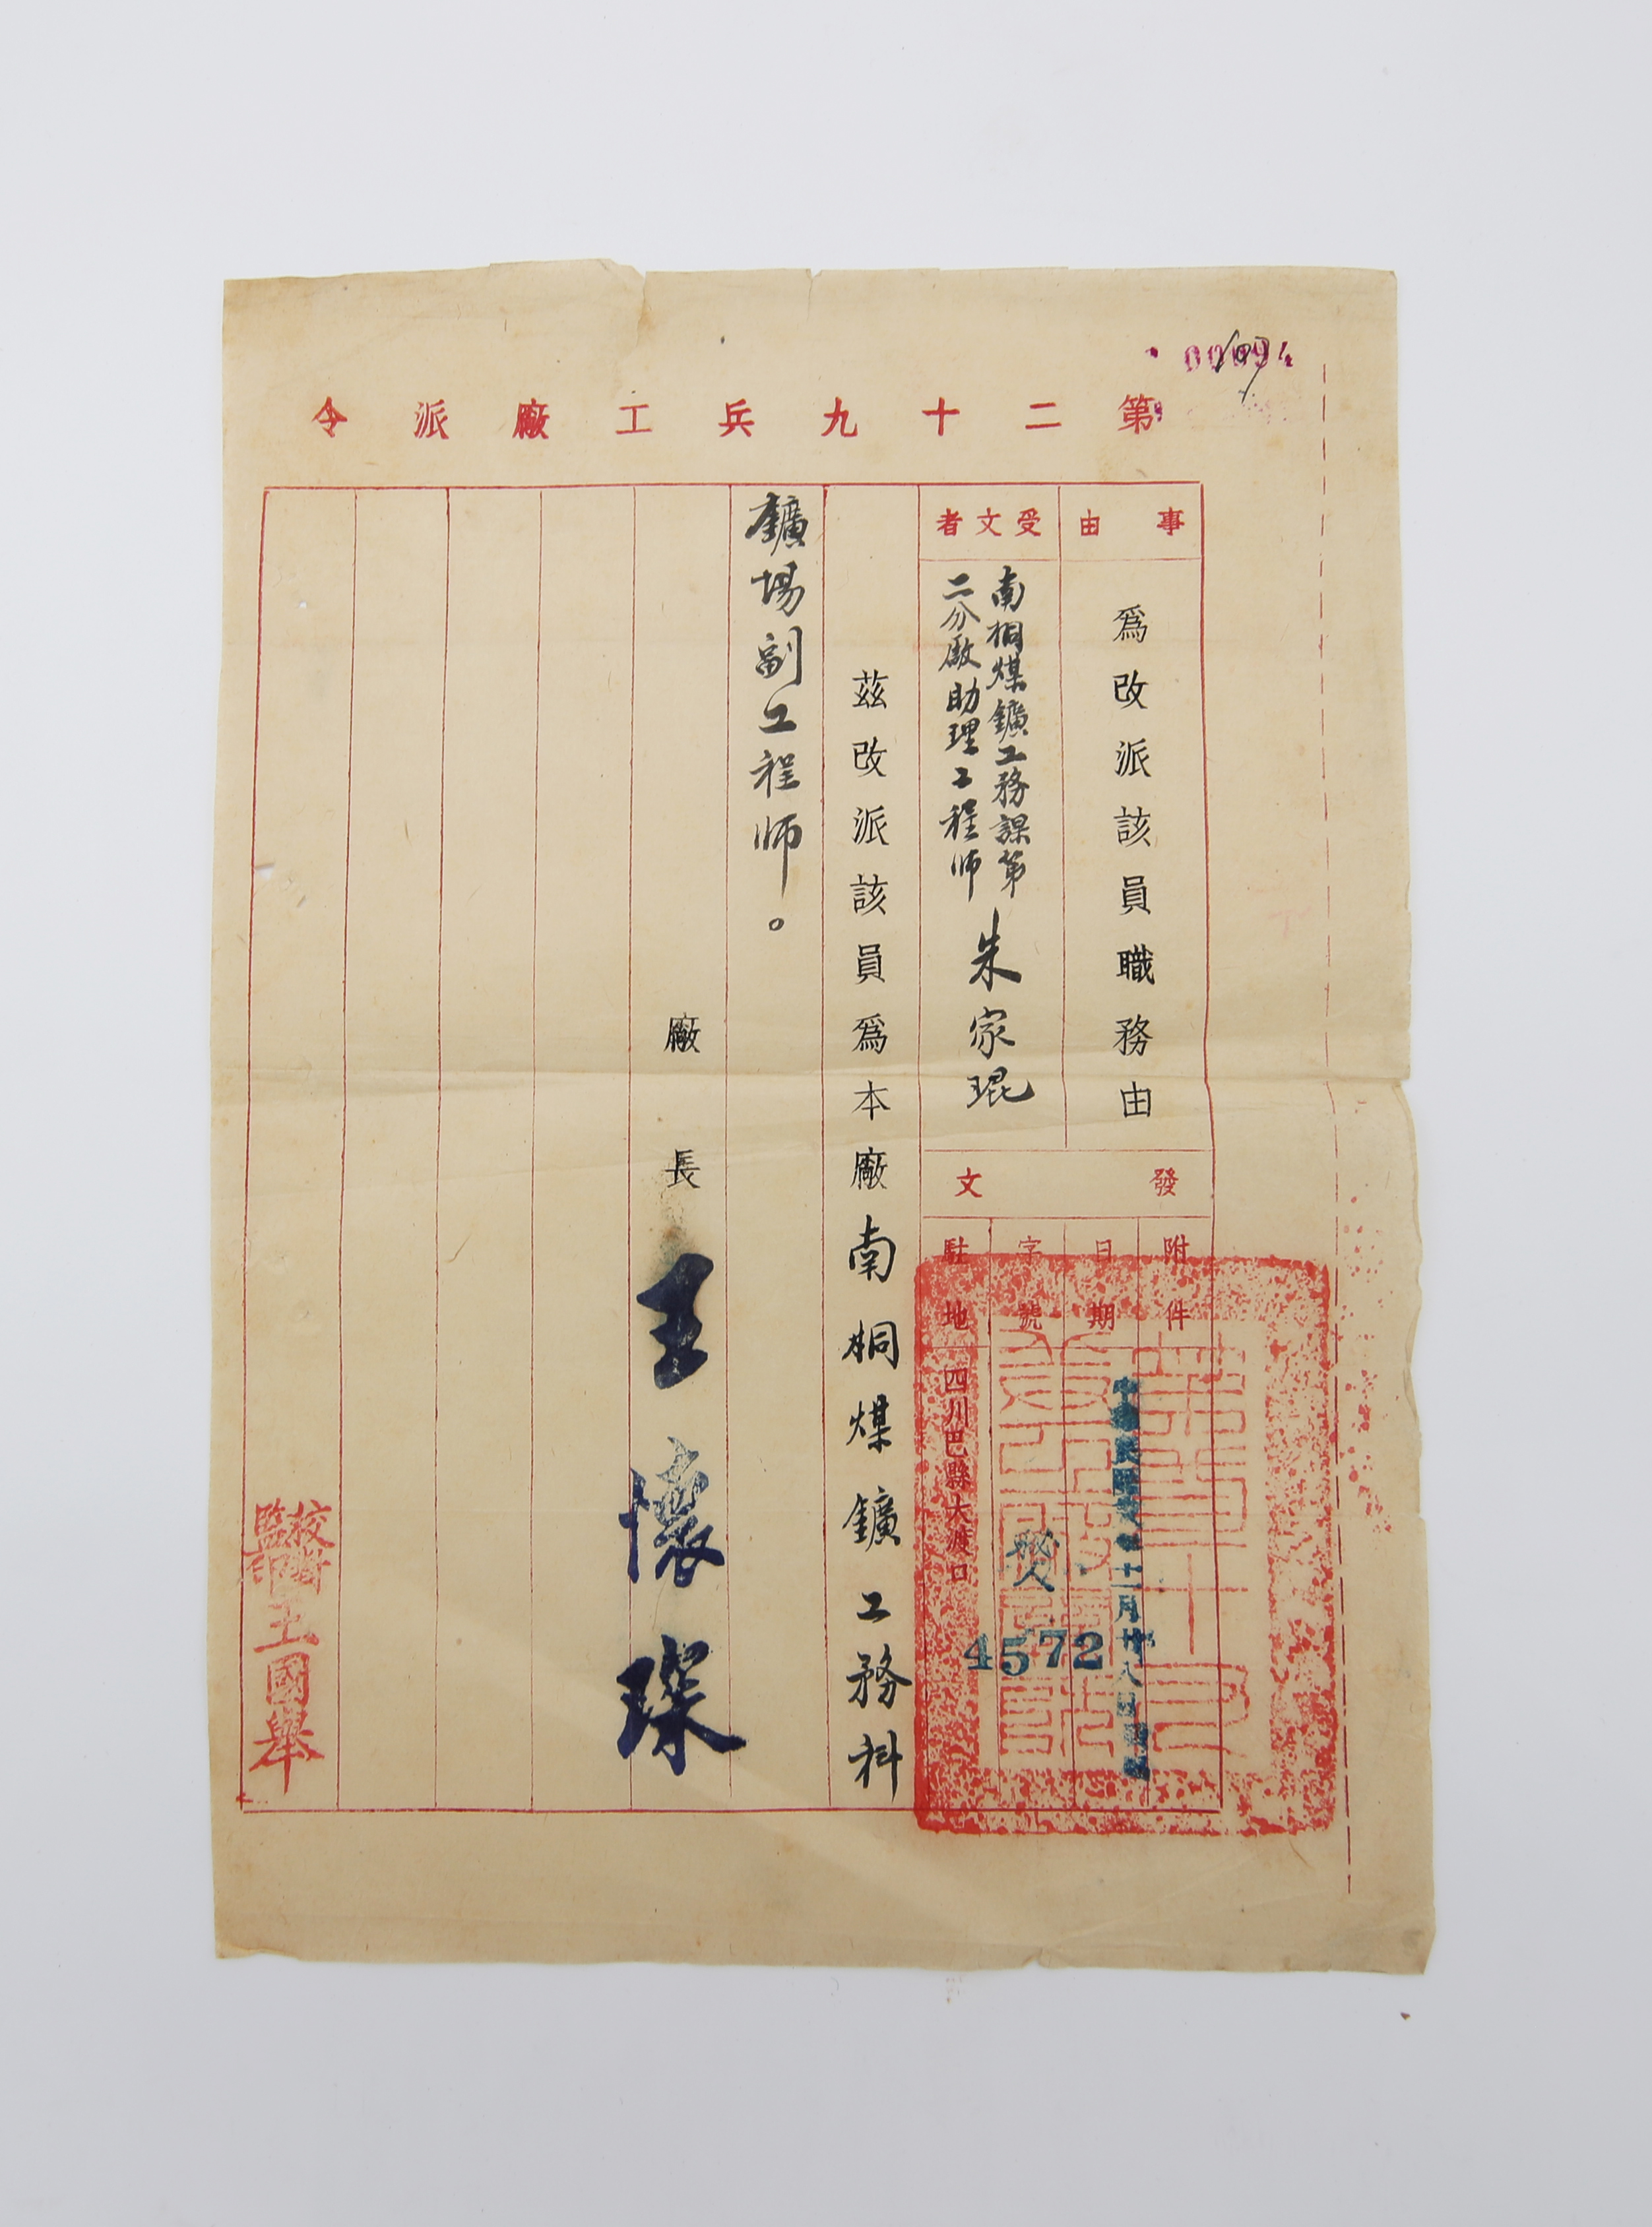 第二十九兵工廠派令
事由
為改派該員職務由
受文者
南桐煤鑛工務課第
二分廠助理工程師
朱家琨
發文
附件
日期
十一月廿八日
字號
4572
駐地
四川巴縣大渡口
茲改派該員為本廠南桐煤鑛工務科
鑛場副工程師。
廠長
王懷琛
校對
監印
王國舉